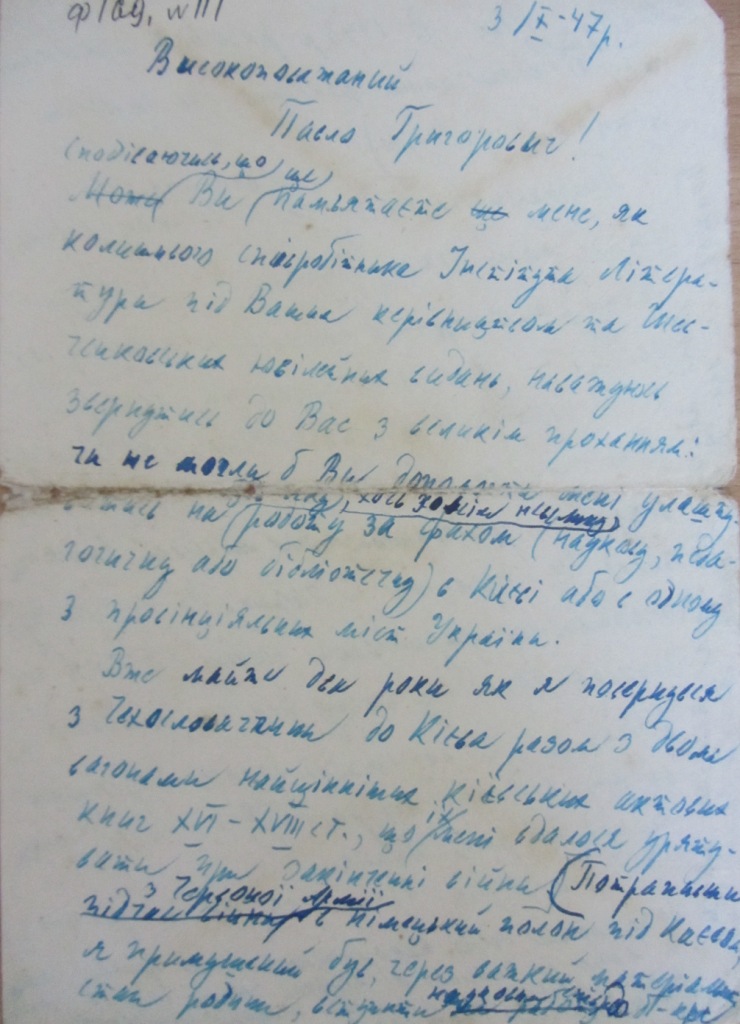 ф 109, № 111
3/X-47 р.
Високоповажаний
Павло Григорович!
(сподіваючись, що ще)
Може Ви памьятаєте ще мене, як
колишнього співробітника Інстітута Літера-
тури під Вашим керівництвом та Шев-
ченковських ювілейних видань, наважуюсь
звернутись до Вас з великім проханням:
чи не могли б Ви допомогти мені улашту-
хоч зовсім невелику
ватись на роботу за фахом (наукову, педа-
гогичну або бібліотечну) в Київі або в одному
з провінціяльних міст України.
Вже майже два роки як я повернувся
з Чехословаччини до Київа разом з двома
вагонами найціннітих київських актових
книг XVI–XVIII ст., що їх мені вдалося уряту-
вати при закінченні війни (Потрапивши
з Червоної Армії
підчас війни в німецький полон під Києвом,
я примушений був, через важкий матеріальн.
стан родини, вступити